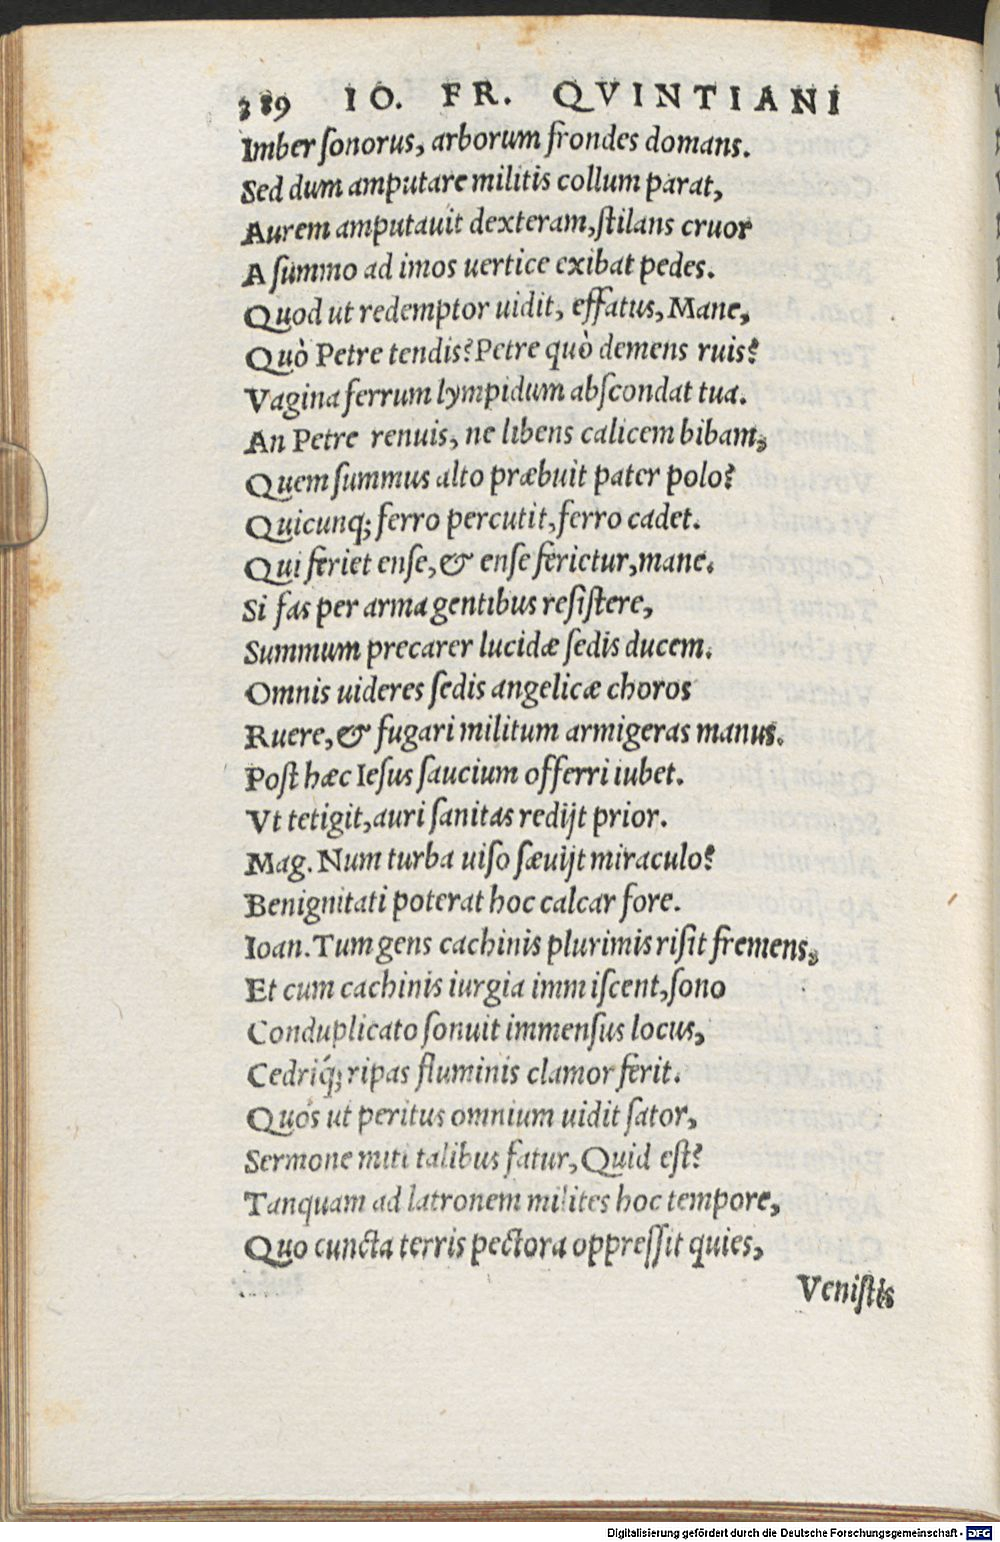 389 IO. FR. QVINTIANI
Imber ſonorus, arborum frondes domans.
Sed dum amputare militis collum parat,
Aurem amputauit dexteram, ſtilans cruor
A ſummo ad imos uertice exibat pedes.
Quod ut redemptor uidit, effatus, Mane,
Quò Petre tendis? Petre quò demens ruis?
Vagina ferrum lympidum abſcondat tua.
An Petre renuis, ne libens calicem bibam,
Quem ſummus alto præbuit pater polo?
Quicunq; ferro percutit, ferro cadet.
Qui feriet enſe, & enſe ferietur, mane.
Si fas per arma gentibus reſiſtere,
Summum precarer lucidæ ſedis ducem.
Omnis uideres ſedis angelicæ choros
Ruere, & fugari militum armigeras manus.
Poſt hæc Ieſus ſaucium offerri iubet.
Vt tetigit, auri ſanitas redijt prior.
Mag. Num turba uiſo ſæuijt miraculo?
Benignitati poterat hoc calcar fore.
Ioan. Tum gens cachinis plurimis riſit fremens,
Et cum cachinis iurgia immiſcent, ſono
Conduplicato ſonuit immenſus locus,
Cedriq́; ripas fluminis clamor ferit.
Quós ut peritus omnium uidit ſator,
Sermone miti talibus fatur, Quid eſt?
Tanquam ad latronem milites hoc tempore,
Quo cuncta terris pectora oppreſſit quies,
Veniſtis
Digitalisierung gefördert durch die Deutsche Forschungsgemeinschaft - DFG